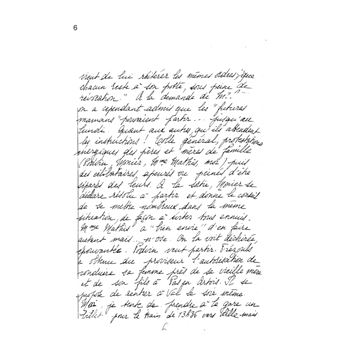 6
vient de lui réitérer les mêmes ordres, "que
chacun reste à son poste, sous peine de
révocation". À la demande de M.?
on a cependant admis que les "futures
mamans" pouvaient partir... jusqu'au
lundi quant aux autres, qu'ils attendent
les instructions! Tollé général, protestations
énergiques des pères et mères de famille
(       Mme Mathis, moi) puis
des célibataires, apeurés ou peinés d'être
séparés des leurs. À la sortie,
déclare résolu à partir et donne le conseil
de se mettre nombreux dans la même
situation, de façon à éviter tous ennuis.
Mme Mathis a "bien envie" d'en faire
autant mais... si on la voit déchirée,
épouvantée.       veut partir.
a obtenu du proviseur l'autorisation de
conduire sa femme près de sa vieille mère
et de son fils à Pas en Artois. Il se
propose de rentrer à       le soir même
Moi, je tente de prendre à la gare un
billet pour le train de 13h35 vers Lille mais
6